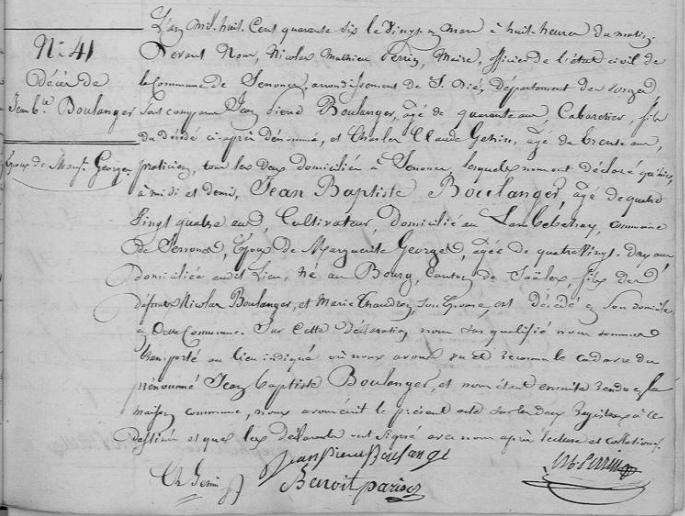 L'an mil huit Cent quarante six le vingt un mars à huit heures du matin,
N°. 41
Devant Nous, Nicolas Mathieu Perrin, Maire, officier de l'état civil de
Décès de
la Commune de Senones, arrondissement de St. Dié, Département des Vosges,
Jean Bte. Boulanger
sont comparus Jean Pierre Boulanger, agé de quarante ans, Cabaretier, fils
du décédé ci-après dénommé, et Charles Claude Genin, agé de trente ans,
Époux de Georges
praticien, tous les deux domiciliés à Senones, lesquels nous ont déclaré qu'hier,
à midi et demi, Jean Baptiste Boulanger, agé de quatre
vingt quatre ans, Cultivateur, domicilié au commune
de Senones, Époux de Marguerite Georges, agée de quatre vingt ans,
domiciliée audit Lieu, né au Bourg, Canton de Saales, fils des
défunts Nicolas Boulanger, et Marie son épouse, est décédé en son domicile
en cette Commune. Sur cette déclaration nous sus qualifié nous sommes
transporté au lieu indiqué où nous avons vu et reconnu le cadavre du
dénommé Jean Baptiste Boulanger, et nous étant ensuite rendu en la
maison commune, nous avons écrit le présent acte sur les deux registres à ce
destinés et que les déclarants ont signé avec nous après lecture et collation.
Jean Pierre Boulange
Ch Genin
Benoit
Perrin